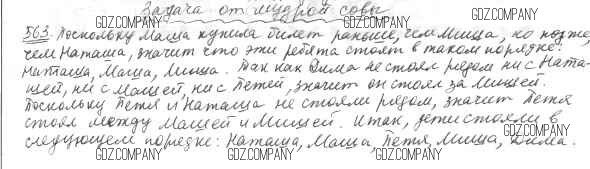 Задача от мудрой совы
563. Поскольку Маша купила билет раньше, чем Миша, но позже,
чем Наташа, значит что эти ребята стоят в таком порядке:
Наташа, Маша, Миша. Так как Дима не стоял рядом ни с Ната-
шей, ни с Машей, ни с Петей, значит он стоял за Мишей.
Поскольку Петя и Наташа не стояли рядом, значит Петя
стоял между Машей и Мишей. Итак, дети стояли в
следующем порядке: Наташа, Маша, Петя, Миша, Дима.
GDZ.COMPANY GDZ.COMPANY GDZ.COMPANY
GDZ.COMPANY GDZ.COMPANY GDZ.COMPANY
GDZ.COMPANY GDZ.COMPANY GDZ.COMPANY
GDZ.COMPANY GDZ.COMPANY GDZ.COMPANY
GDZ.COMPANY GDZ.COMPANY GDZ.COMPANY